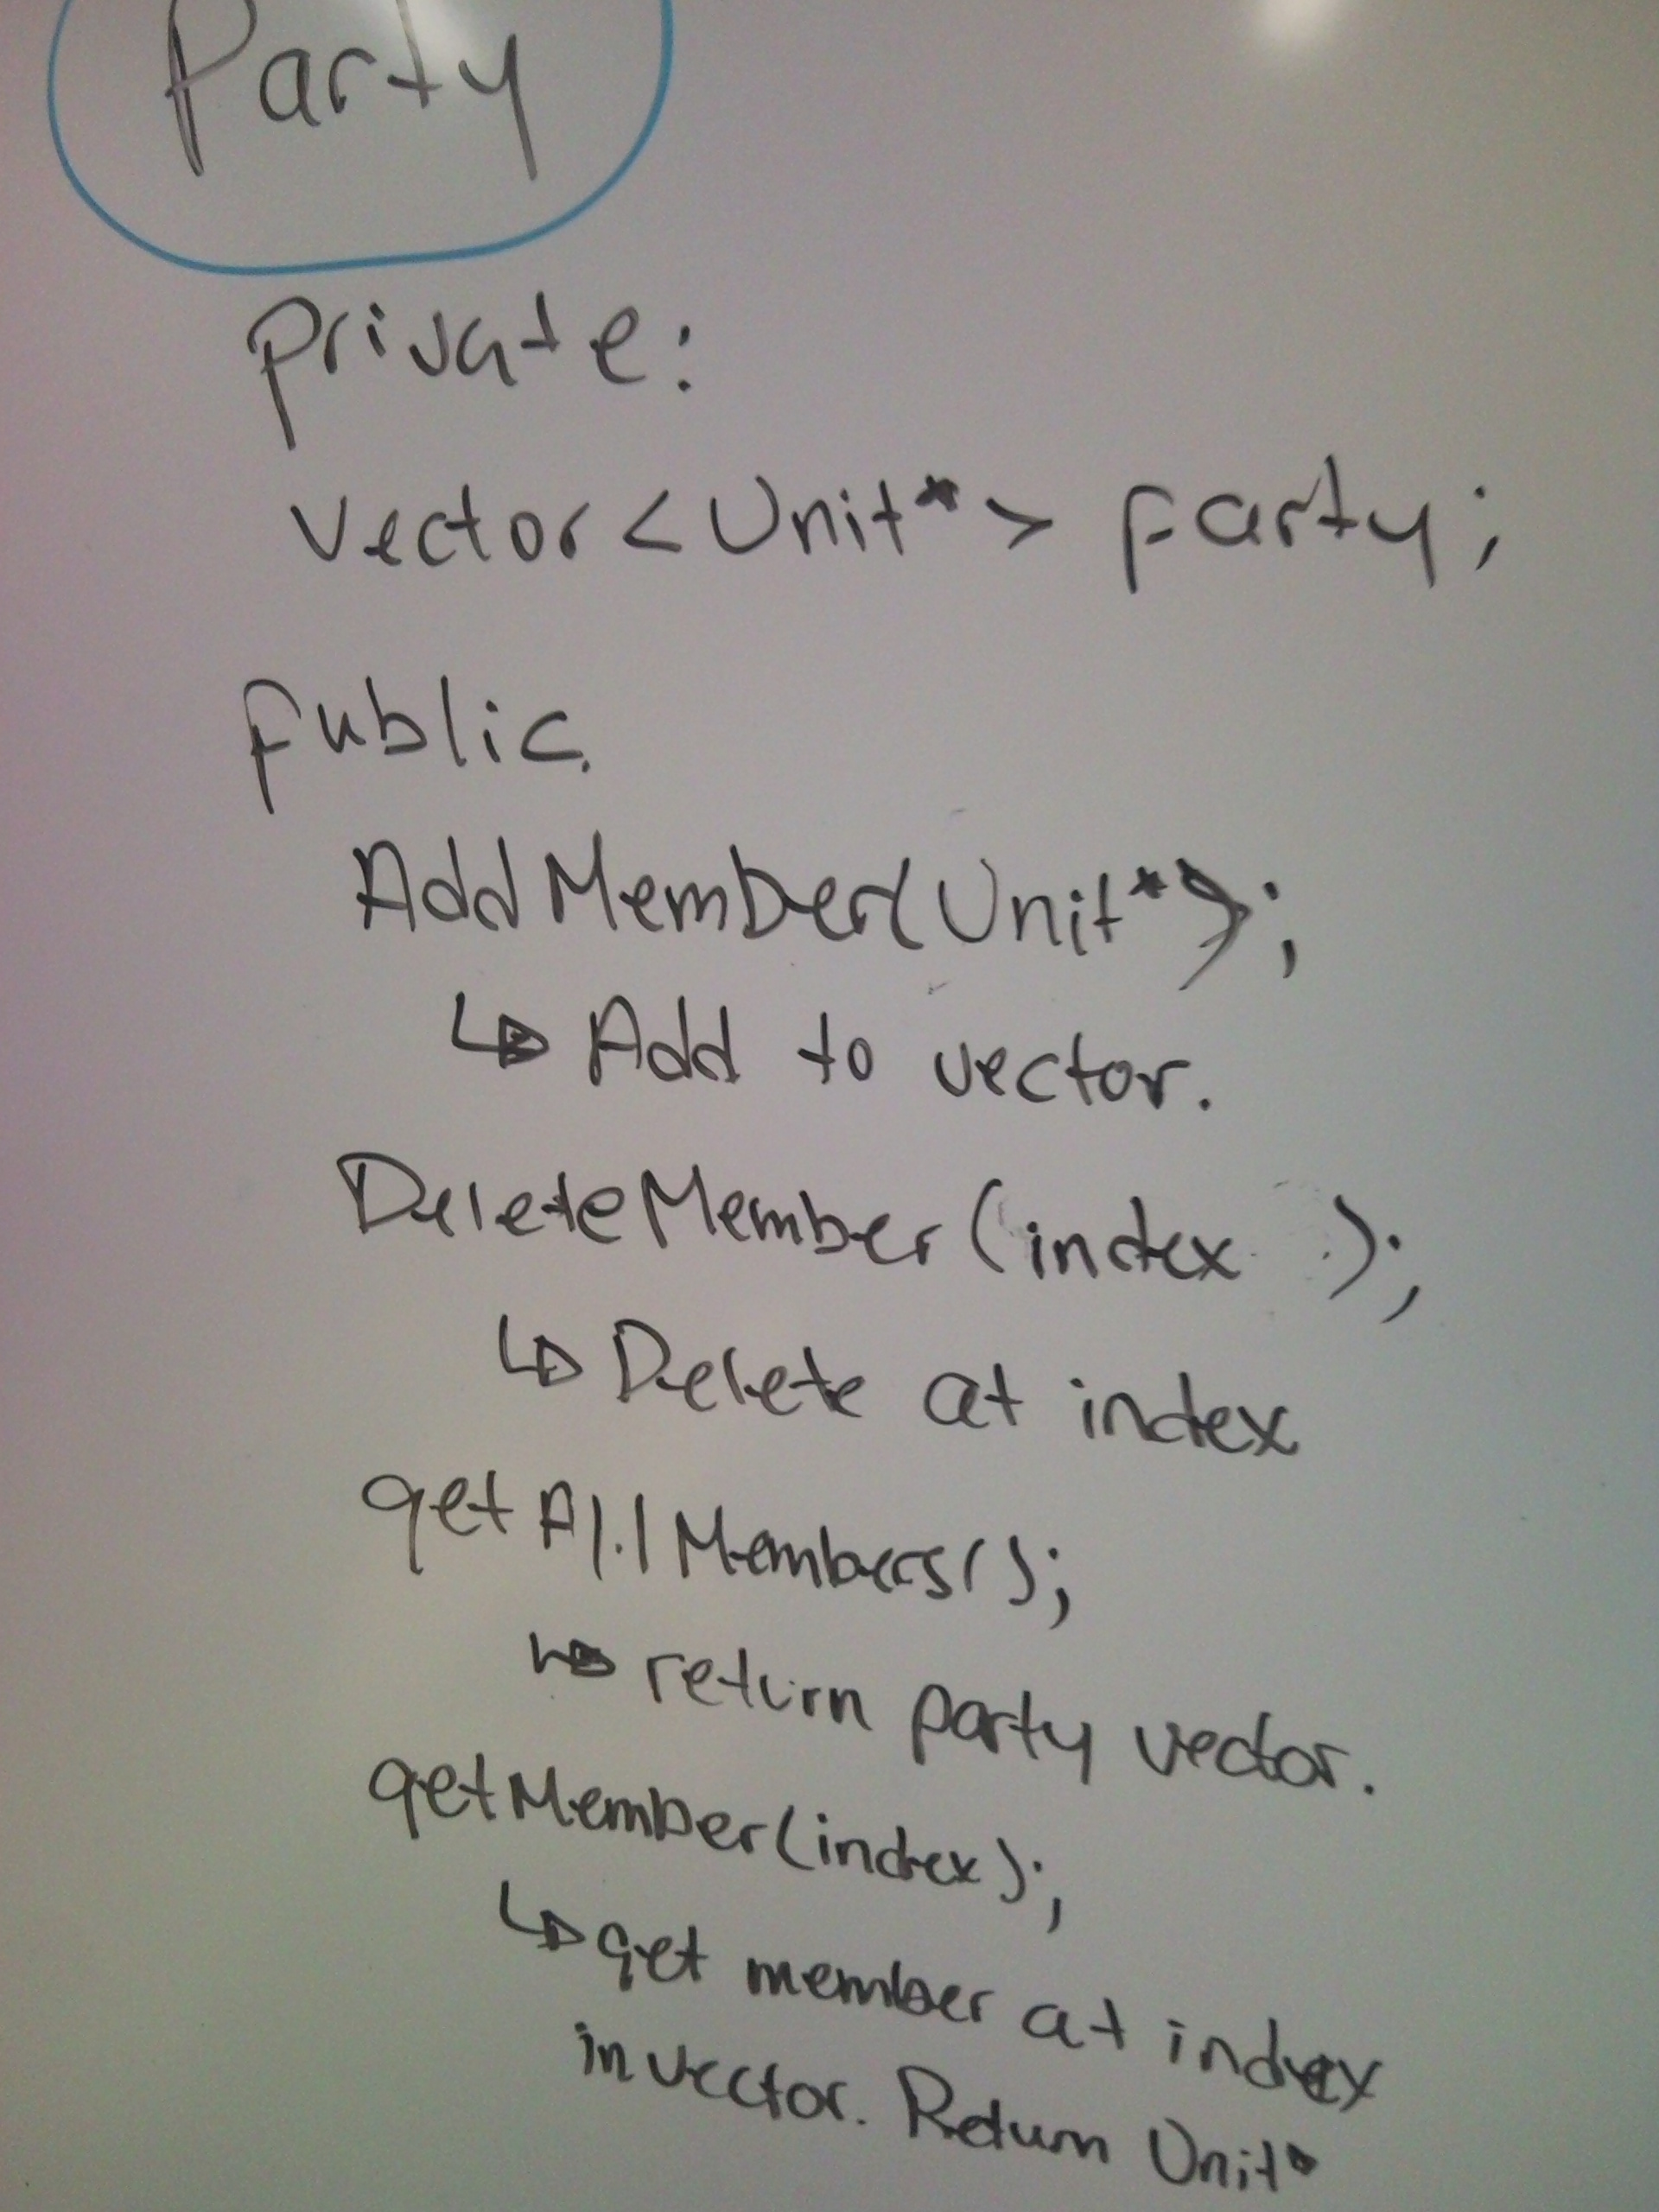 Party
private:
vector<Unit*> party;
public.
AddMember(Unit*);
↳ Add to vector.
DeleteMember (index );
↳ Delete at index
getAllMembers();
↳ return party vector.
getMember(index);
↳ get member at index
in vector. Return Unit*